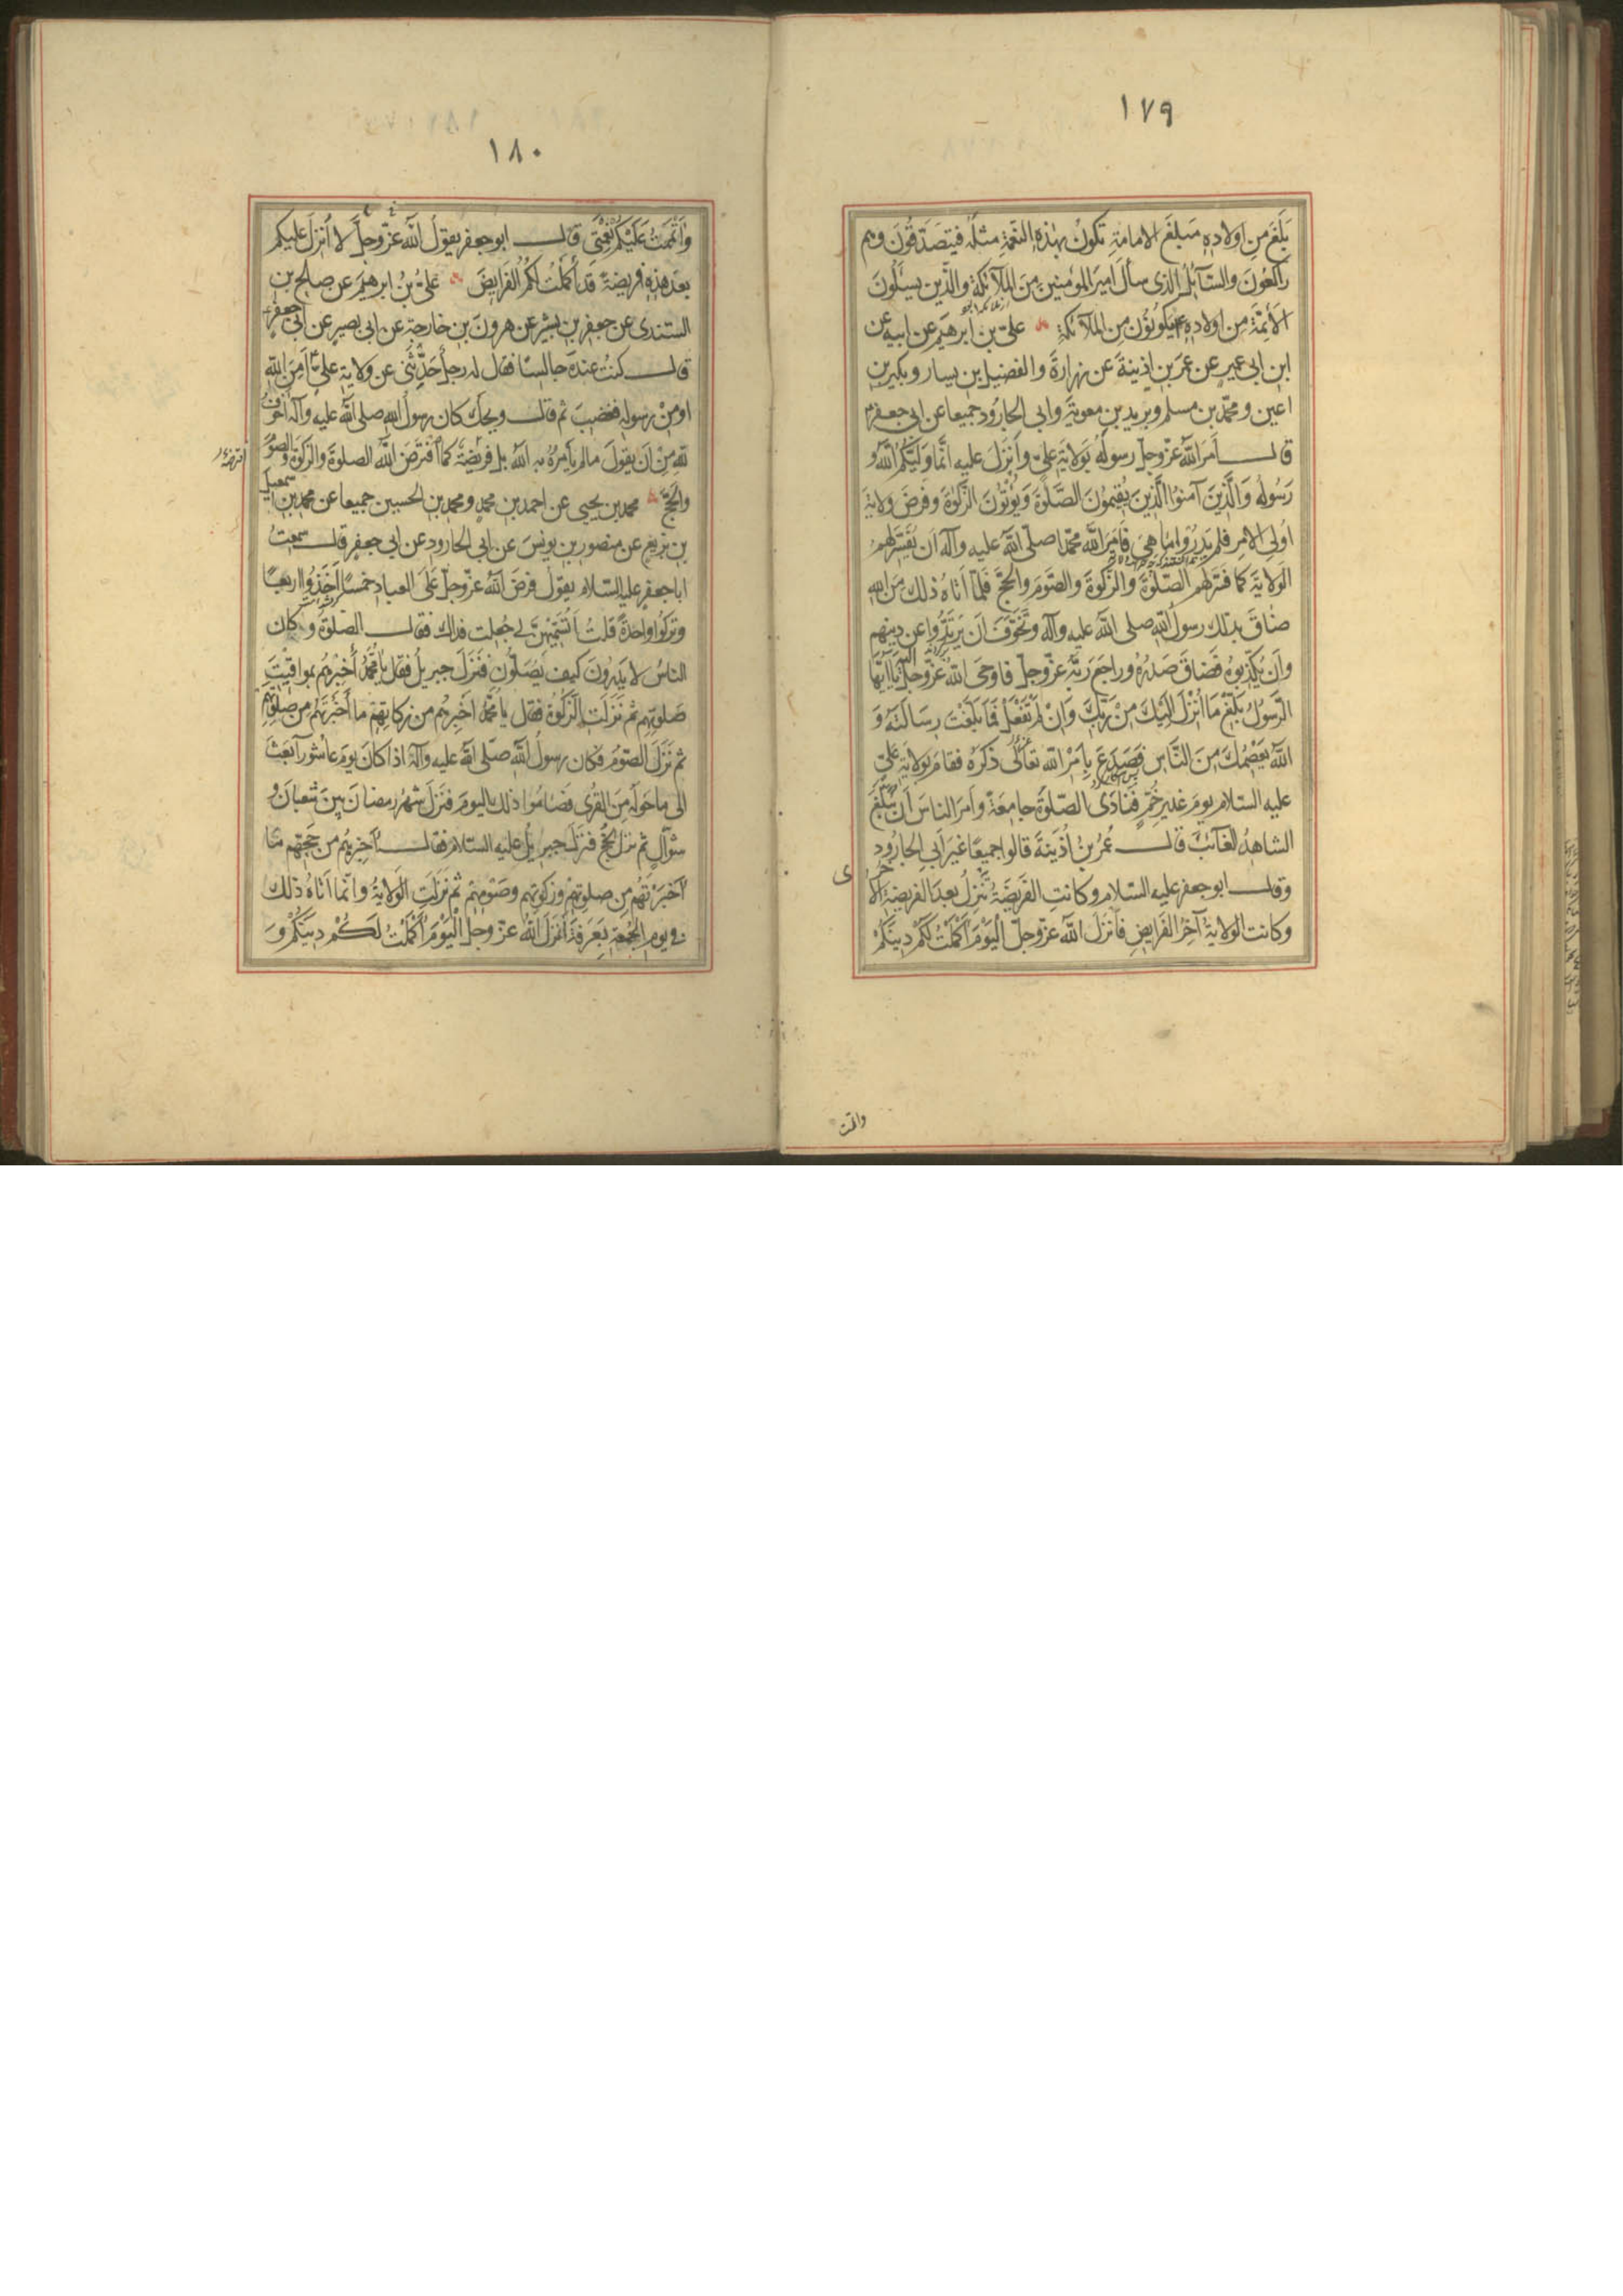 ١٧٩
بَلَغَ مِن اولادِهِ مَبلغَ الامامةِ تكونُ بهذهِ النعمةِ مثلَه فيتصَدّقُونَ وهم
راكعُونَ والسّآئلُ الذى سأل اميرَ المؤمنين مِنَ الملآئكةِ والّذين يسئلُونَ
الأئمّةَ من اولادِهِ يكونُونَ من الملآئكةِ علىّ بن ابرهيم عن ابيه عن
ابن ابى عميرٍ عن عمَر بن اذينةَ عن زرارةَ والفضيل بن يسار وبكير بن
اعين ومحمّد بن مسلم وبريد بن معوية وابى الجارُود جميعا عن ابى جعفر
قال أَمَرَ اللهُ عزّوجلّ رسولَهُ بوَلايَةِ علىٍّ وأَنزَلَ عليه انَّما وَلِيُّكُمُ اللهُ وَ
رَسُولُه وَالَّذِينَ آمنوا الَّذِينَ يُقيمُونَ الصَّلوةَ وَيُؤْتُونَ الزَّكوةَ وفرضَ ولايةَ
اُولى الامرِ فلم يَدرُوا ما هِىَ فَأَمَرَ اللهُ محمّدا صلّى الله عليه وآله ان يُفَسِّرَ لهمُ
الولايَةَ كما فسَّر لهم الصّلوةَ والزّكوةَ والصَّومَ والحجَّ فَلَمّا أتاهُ ذلك مِنَ اللهِ
ضاقَ بذلك رسولُ الله صلى الله عليه وآله وتخوّفَ ان يرتَدُّوا عن دينِهم
وأن يُكَذِّبوهُ فَضاقَ صَدرُهُ وراجَعَ ربَّهُ عزّوجلّ فاوحَى اللهُ عزّوجلّ اليه يا ايّها
الرّسُولُ بَلِّغْ ما اُنْزِلَ اِلَيْكَ مِنْ رَبِّكَ وَاِنْ لَمْ تَفْعَلْ فَما بَلَّغْتَ رِسالَتَهُ وَ
اللهُ يَعْصِمُكَ مِنَ النَّاسِ فَصَدَعَ بِأَمْرِ اللهِ تعالى ذكرُهُ فقامَ بولايةِ علىٍّ
عليه السّلام يومَ غديرِ خُمٍّ فَنادَى الصّلوةَ جامِعَةً وأمَرَ الناسَ أن يُبَلِّغَ
الشاهِدُ الغآئبَ قال عُمَرُ بنُ اُذَينَةَ قالوا جميعًا غيرَ أبى الجارُود
وقال ابو جعفر عليه السّلام وكانتِ الفَريضَةُ تَنزِلُ بعدَ الفريضةِ الاخرى
وكانت الولايةُ آخِرَ الفَرايضِ فأنزَلَ اللهُ عزّوجلّ اَلْيَوْمَ اَكْمَلْتُ لَكُمْ دِينَكُمْ
واتممت
١٨٠
وَاَتْمَمْتُ عَلَيْكُمْ نِعْمَتِى قال ابو جعفر يقولُ اللهُ عزّوجلّ لا اُنزِلُ عليكم
بعدَ هذهِ فريضةً قد أكملتُ لكُمُ الفَرايضَ علىُّ بنُ ابرهيمَ عن صالح بن
السندى عن جعفر بن بشيرٍ عن هرونَ بن خارجة عن ابى بصير عن ابى جعفر
قال كنتُ عندَه جالسًا فقال له رجلٌ حَدِّثْنى عن ولايةِ علىٍّ أَمِنَ اللهِ
او مِنْ رسولِه فغضِبَ ثم قال ويحك كان رسولُ الله صلى الله عليه وآله اخوَفَ
للهِ مِنْ ان يقولَ مالم يأمُرْهُ به اللهُ بل فَريضَةٌ كما افترَضَ اللهُ الصلوةَ والزكوةَ والصّومَ
والحجَّ محمد بن يحيى عن احمد بن محمد ومحمد بن الحسين جميعا عن محمد بن اسمعيل
بن بزيع عن منصور بن يونسَ عن ابى الجارود عن ابى جعفر قال سمعتُ
ابا جعفرٍ عليه السّلام يقولُ فرضَ اللهُ عزّوجلّ عَلَى العبادِ خمسًا أَخَذُوا اربعًا
وتركُوا واحدةً قلتُ أتُسَمِّيهِنَّ لى جُعِلت فداك فقال الصّلوةُ وكان
الناسُ لا يَدرُونَ كيف يُصَلُّون فنَزَلَ جبريلُ فقال يا محمّدُ أَخبِرهُم بمواقيتِ
صَلوتِهِم ثم نَزَلَتِ الزَّكوةُ فقال يا محمّدُ اخبِرهُم من زكاتِهِم ما أَخبَرتَهُم مِن صلوتِهِم
ثم نَزَلَ الصّومُ فكان رسولُ الله صلّى الله عليه وآله اذا كانَ يومُ عاشُورآ بَعَثَ
الى ما حولَه مِنَ القُرى فَصامُوا ذلك اليومَ فنزَلَ شهرُ رمضانَ بينَ شعبانَ وَ
شوّالٍ ثم نزل الحجُّ فنَزَلَ جبريلُ عليه السّلام فقال أخبِرهُم من حَجِّهِم ما
أخبَرتَهُم من صلوتِهِم وزكوتِهِم وصَومِهِم ثم نَزَلَتِ الولايةُ وانّما أتاهُ ذلك
فى يومِ الجُمعةِ بِعَرَفَةَ أَنزَلَ اللهُ عزّوجلّ اَلْيَوْمَ اَكْمَلْتُ لَكُمْ دِينَكُمْ وَ